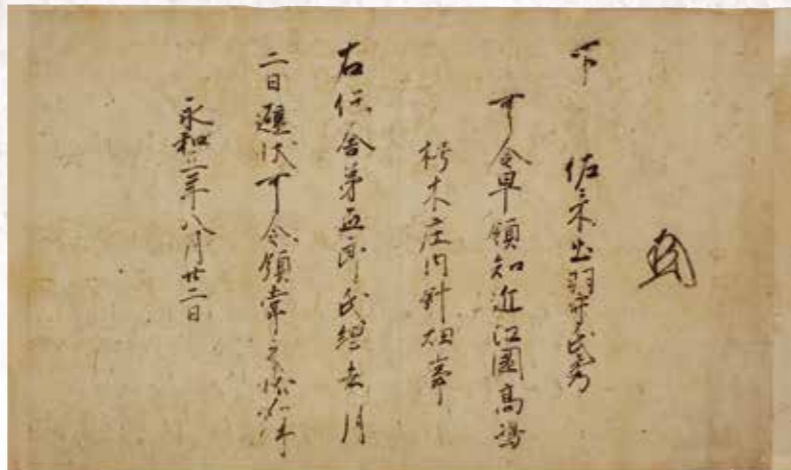 下　佐々木出羽守氏秀
可令早領知近江國高嶋
朽木庄内針畑事
右任舎弟五郎氏継去月
二日避状可令領掌之状如件
永和三年八月廿二日